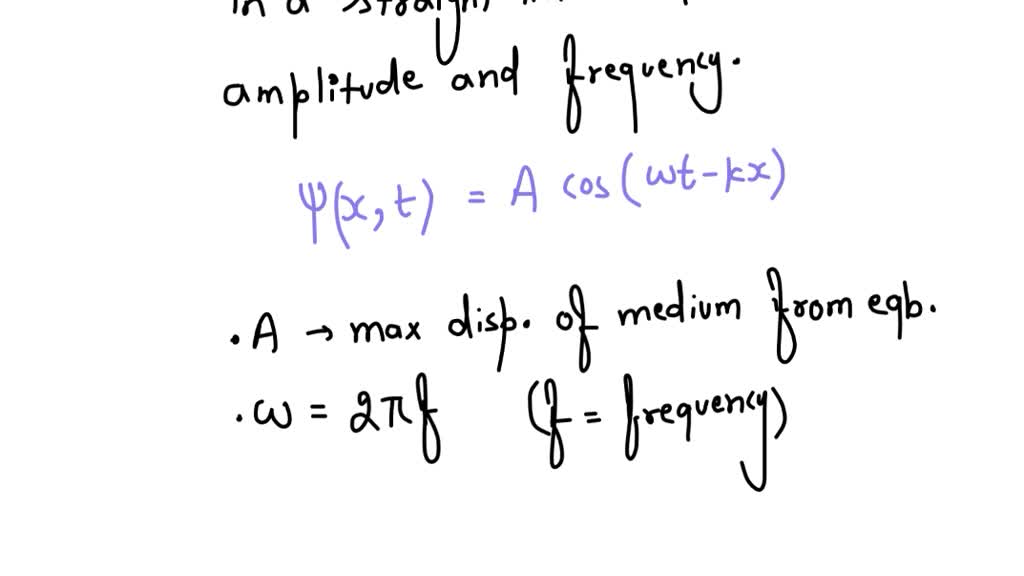 in a
amplitude and frequency.
ψ(x, t) = A cos(ωt - kx)
. A → max disp. of medium from eqb.
. ω = 2πf (f = frequency)